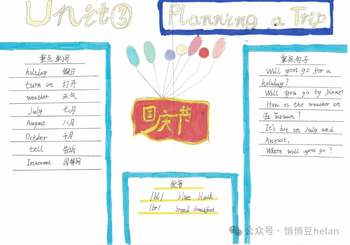 Unit 3
Planning a Trip
重点单词
holiday 假日
turn on 打开
weather 天气
July 七月
August 八月
October 十月
tell 告诉
Internet 因特网
国庆节
重点句子
Will you go for a
holiday?
Will you go by plane?
How is the weather
in Taiwan?
It's hot in July and
August.
Where will you go?
/bl/ blue black
/br/ bread breakfast
公众号 · 悄悄豆helan